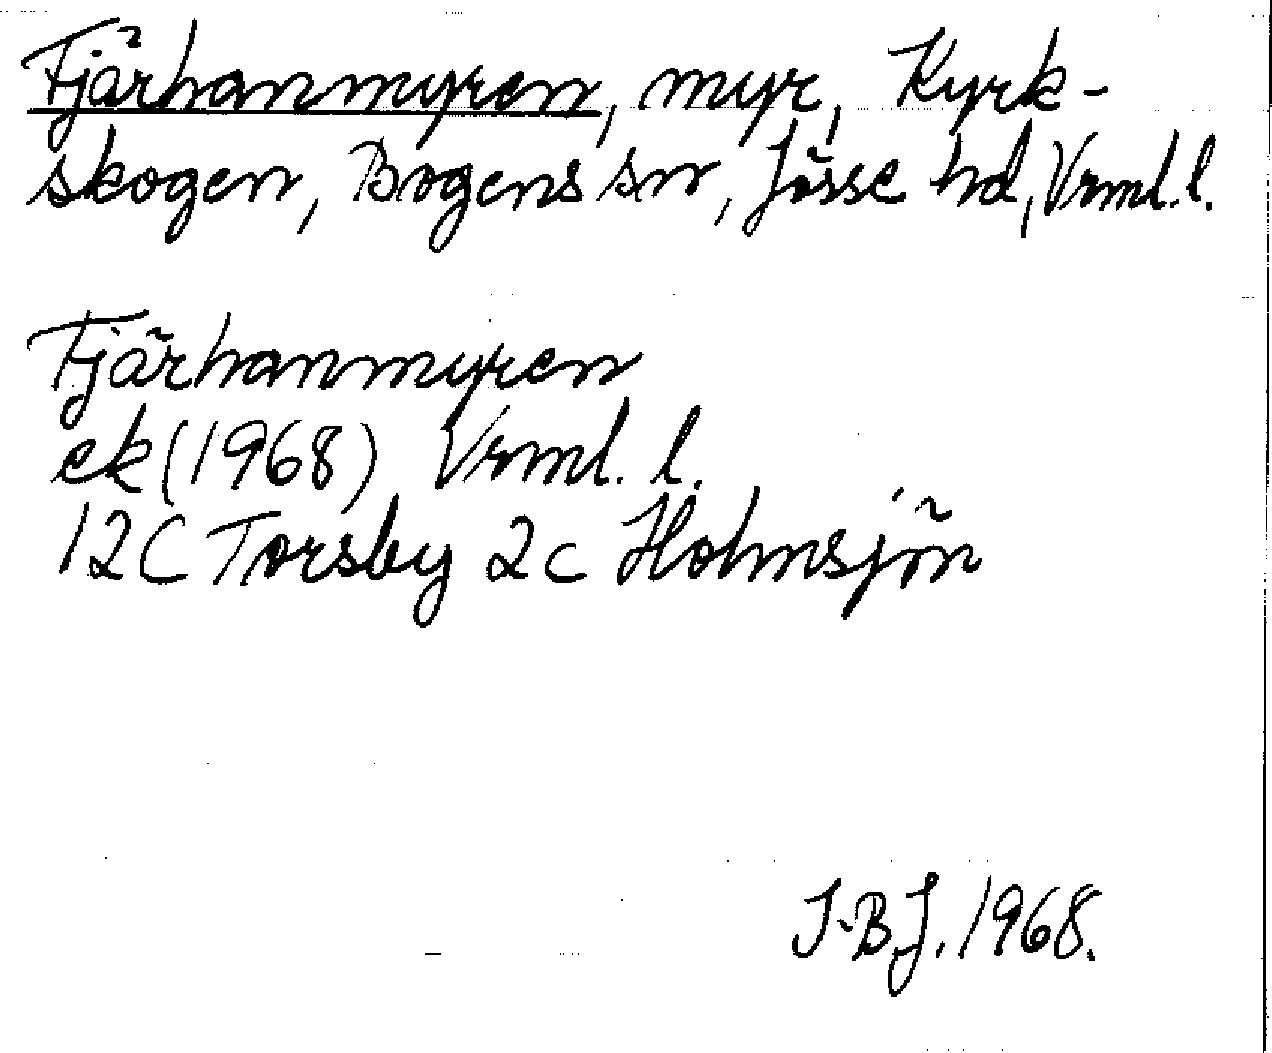 Fjärhanmyren, myr, Kyrk-
skogen, Bogens sn, Jösse hd, Vrml. l.
Fjärhanmyren
ek (1968) Vrml. l.
12C Torsby 2c Holmsjön
I-B J. 1968.